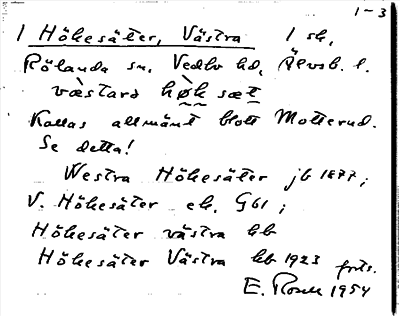 1-3
1 Hökesäter, Västra 1 sk,
Rölanda sn. Vedbo hd, Älvsb. l.
væstara hø̀k sæt
Kallas allmänt blott Motterud.
Se detta!
Westra Hökesäter jb 1877;
V. Hökesäter ek. G61;
Hökesäter västra kb
Hökesäter Västra kb 1923 forts.
E. Rosell 1954